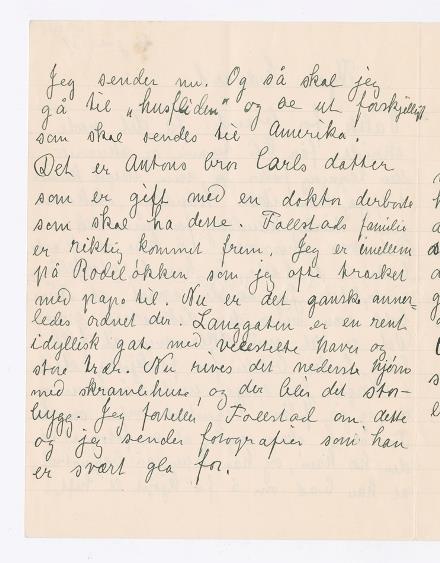 Jeg sender nu. Og så skal jeg
gå til "husfliden" og se ut forskjellig
som skal sendes til Amerika.
Det er Antons bror Carls datter
som er gift med en doktor derborte
som skal ha dette. Fallstads familie
er riktig kommet frem. Jeg er imellem
på Rodeløkken som jeg ofte trasket
med papa til. Nu er det ganske anner-
ledes ordnet der. Langgaten er en rent
idyllisk gate med velstelte haver og
store trær. Nu rives det nederste hjørne
med skramlehuse, og der blir det stor-
bygg. Jeg forteller Fallstad om dette
og jeg sender fotografier som han
er svært gla for.